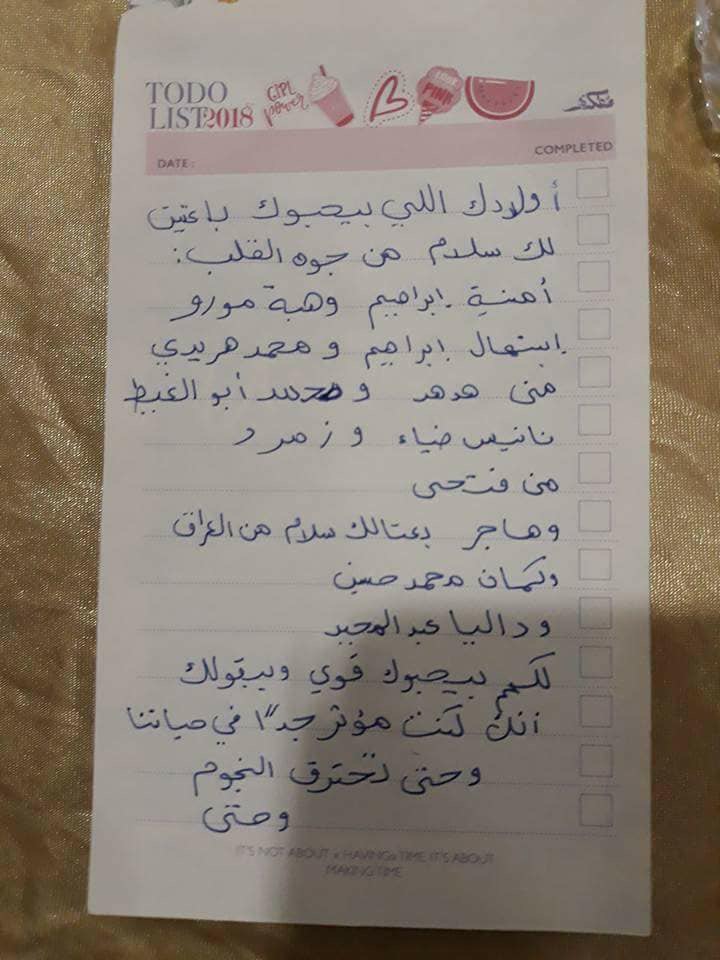 TODO
LIST 2018
GIRL power
PINK
DATE:
COMPLETED
أولادك اللي بيحبوك باعتين
لك سلام من جوه القلب:
أمنية إبراهيم وهبة مورو
إبتهال إبراهيم و محمد هريدي
منى هدهد و محمد أبو الغيط
نانيس ضياء و زمرد
من فتحى
وهاجر بعتالك سلام من العراق
وكمان محمد حسين
و داليا عبد المجيد
كلهم بيحبوك قوي وبيقولك
أنك كنت مؤثر جداً في حياتنا
وحتى تحترق النجوم
وحتى
IT'S NOT ABOUT HAVING TIME IT'S ABOUT
MAKING TIME